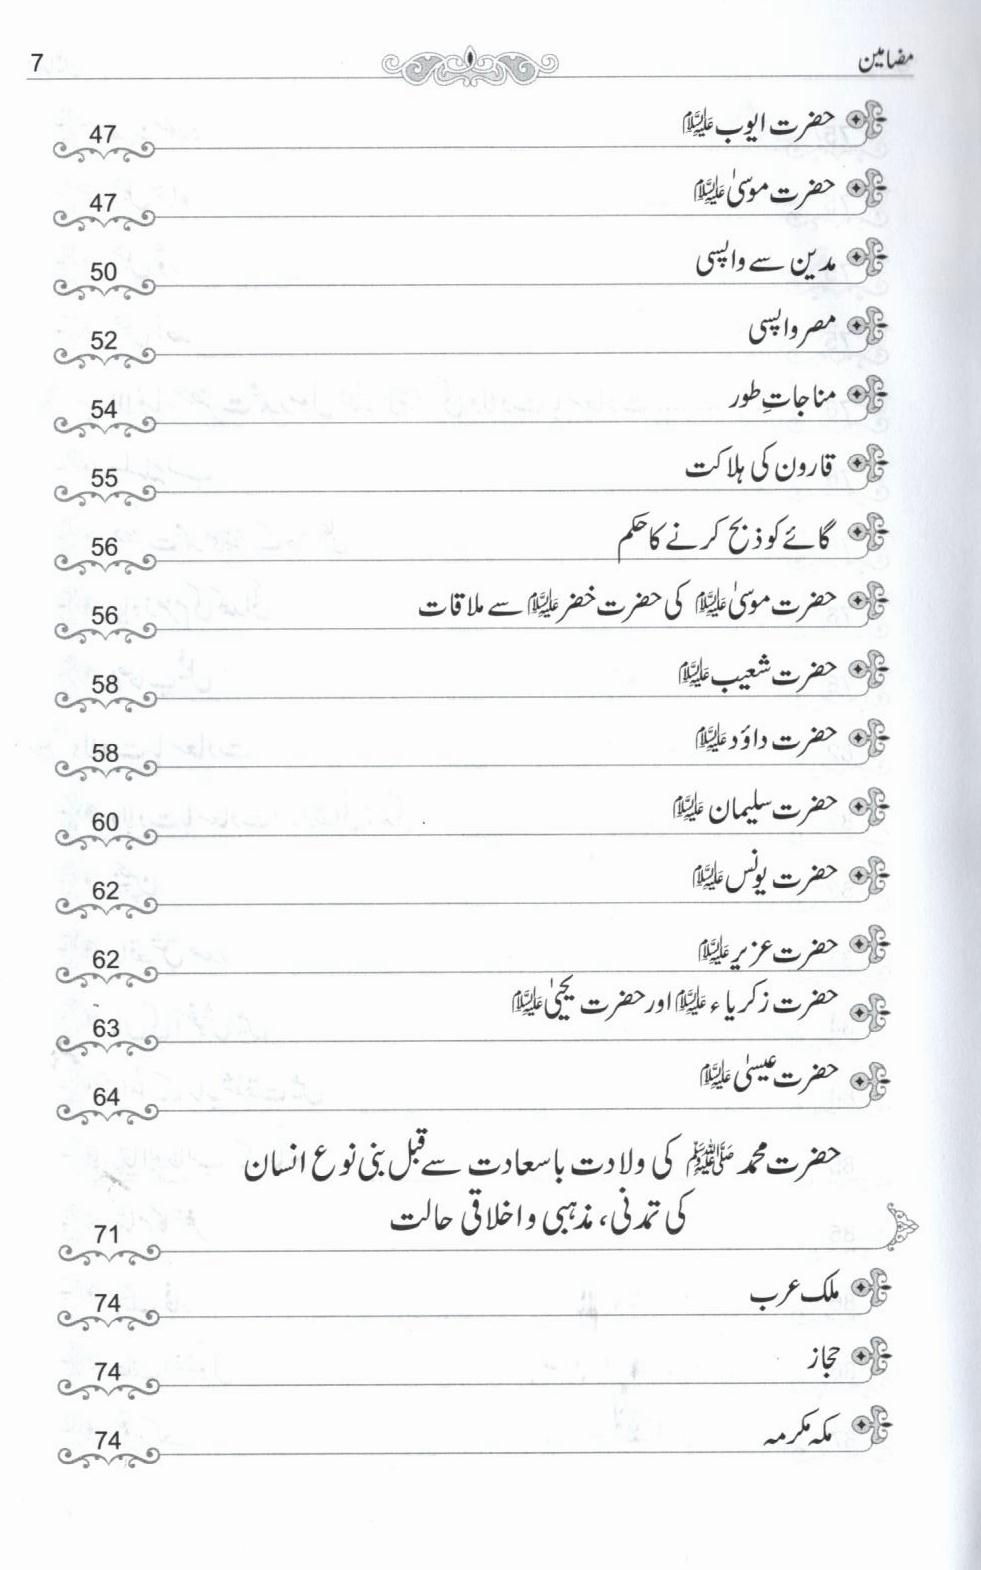 مضامین 7
حضرت ایوب علیہ السلام 47
حضرت موسیٰ علیہ السلام 47
مدین سے واپسی 50
مصر واپسی 52
مناجاتِ طور 54
قارون کی ہلاکت 55
گائے کو ذبح کرنے کا حکم 56
حضرت موسیٰ علیہ السلام کی حضرت خضر علیہ السلام سے ملاقات 56
حضرت شعیب علیہ السلام 58
حضرت داؤد علیہ السلام 58
حضرت سلیمان علیہ السلام 60
حضرت یونس علیہ السلام 62
حضرت عزیر علیہ السلام 62
حضرت زکریاء علیہ السلام اور حضرت یحییٰ علیہ السلام 63
حضرت عیسیٰ علیہ السلام 64
حضرت محمد ﷺ کی ولادت باسعادت سے قبل بنی نوع انسان
کی تمدنی، مذہبی و اخلاقی حالت 71
ملک عرب 74
حجاز 74
مکہ مکرمہ 74